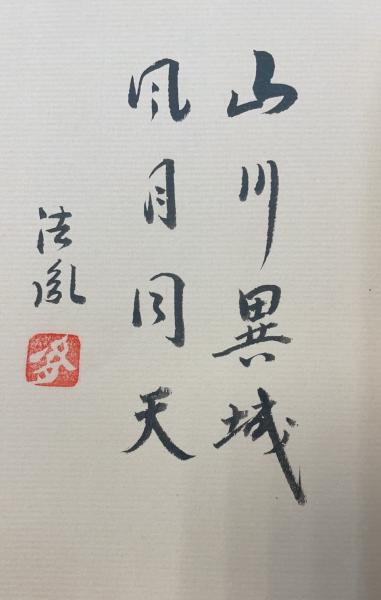 山川異域
風月同天
法胤